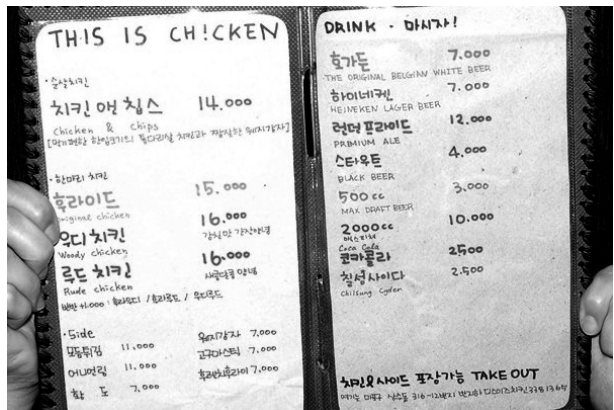 THIS IS CH!CKEN
·순살치킨
치킨 앤 칩스 14.000
Chicken & chips
[먹기편한 한입크기의 통다리살 치킨과 짭짤한 웨지감자]
·한마리 치킨
후라이드 15.000
original chicken
우디 치킨 16.000
Woody chicken 간장양념
루드 치킨 16.000
Rude chicken 양념
반반 +1.000 : 후라우디 / 후라루드 / 우디루드
·Side
모듬튀김 11.000
어니언링 11.000
황도 7.000
웨지감자 7.000
고구마스틱 7.000
후렌치후라이 7.000
DRINK · 마시자!
호가든 7.000
THE ORIGINAL BELGIAN WHITE BEER
하이네켄 7.000
HEINEKEN LAGER BEER
런던프라이드 12.000
PRIMIUM ALE
스타우트 4.000
BLACK BEER
500cc 3.000
MAX DRAFT BEER
2000cc 10.000
맥스피쳐
Coca Cola
코카콜라 2.500
칠성사이다 2.500
Chilsung Cyder
치킨&사이드 포장가능 TAKE OUT
여기는 마포구 상수동 316-12번지 반지하 디스이즈치킨 338 1365